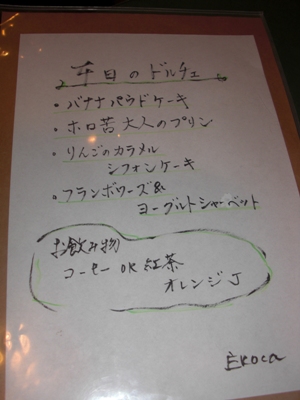 平日のドルチェ
・バナナパウンドケーキ
・ホロ苦大人のプリン
・りんごのカラメル
シフォンケーキ
・フランボワーズ&
ヨーグルトシャーベット
お飲み物
コーヒー OR 紅茶
オレンジJ